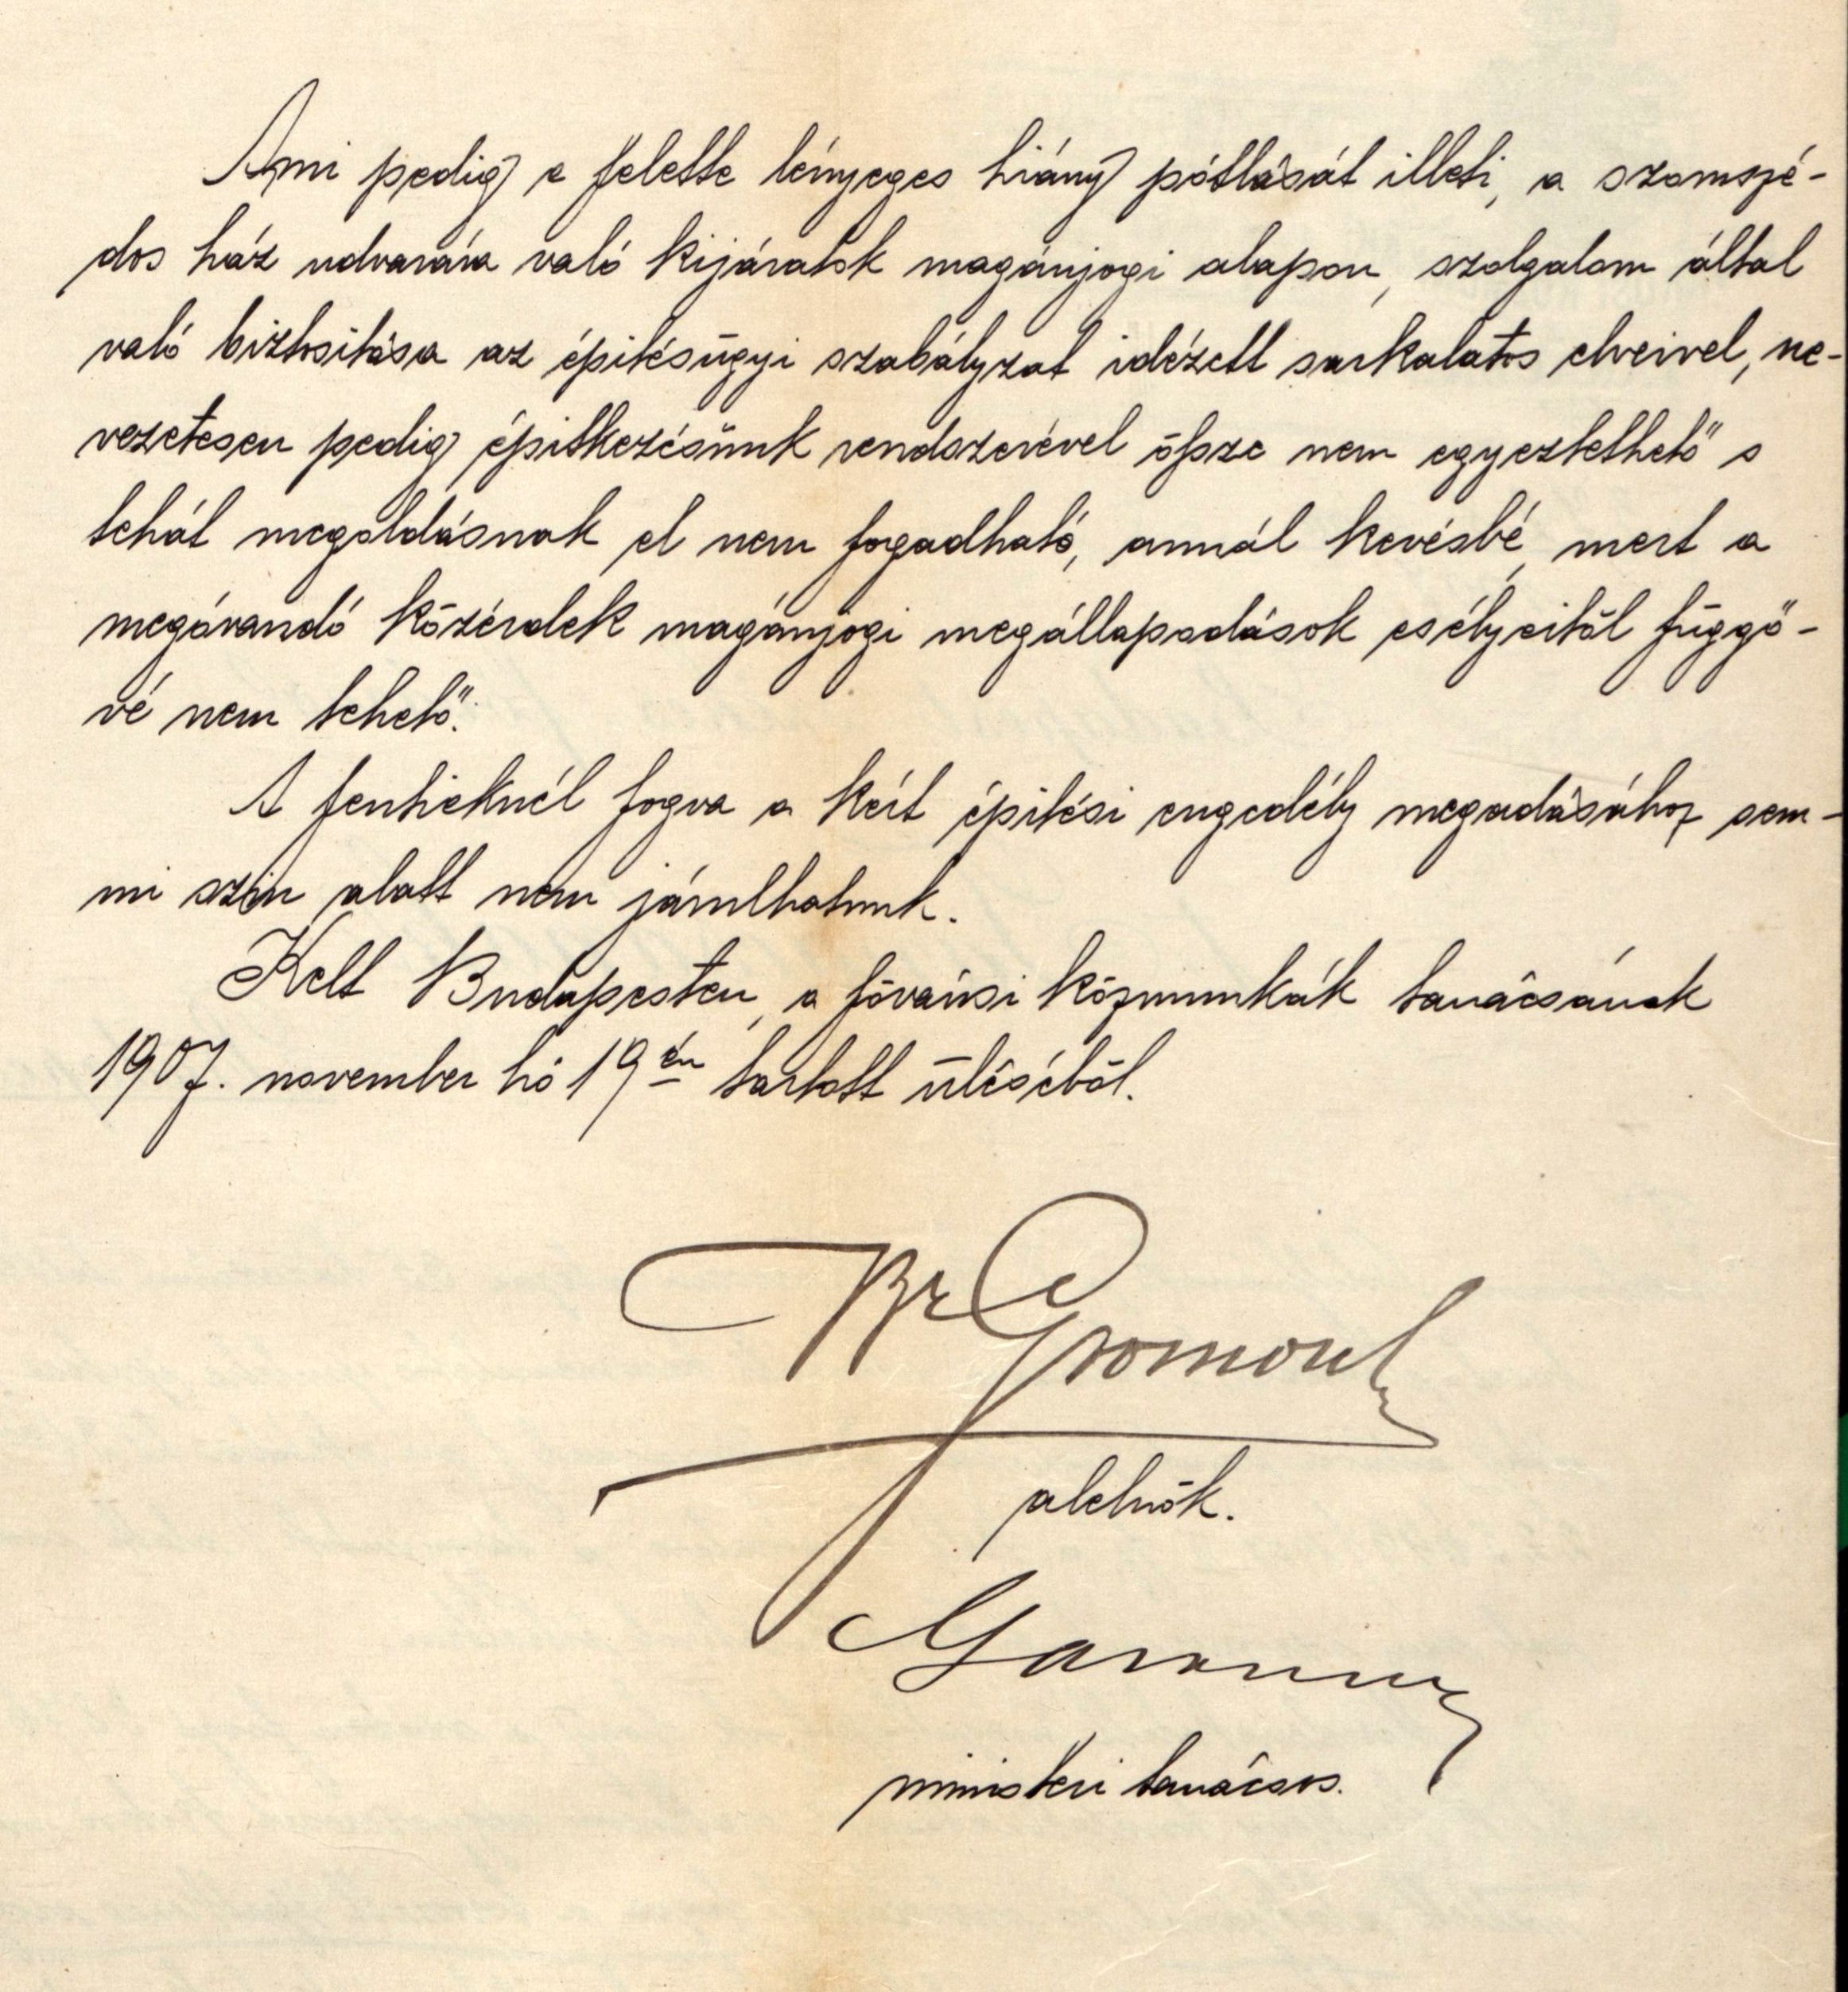 Ami pedig e felette lényeges hiány pótlását illeti, a szomszé-
dos ház udvarára való kijáratok magánjogi alapon, szolgalom által
való biztosítása az építésügyi szabályzat idézett sarkalatos elveivel, ne-
vezetesen pedig építkezésünk rendszerével össze nem egyeztethető s
tehát megoldásnak el nem fogadható, annál kevésbé, mert a
megóvandó közérdek magánjogi megállapodások esélyeitől függő-
vé nem tehető.
A fentieknél fogva a kért építési engedély megadásához sem-
mi szin alatt nem járulhatunk.
Kelt Budapesten, a fővárosi közmunkák tanácsának
1907. november hó 19 én tartott üléséből.
Br Gromon
alelnök.
ministeri tanácsos.